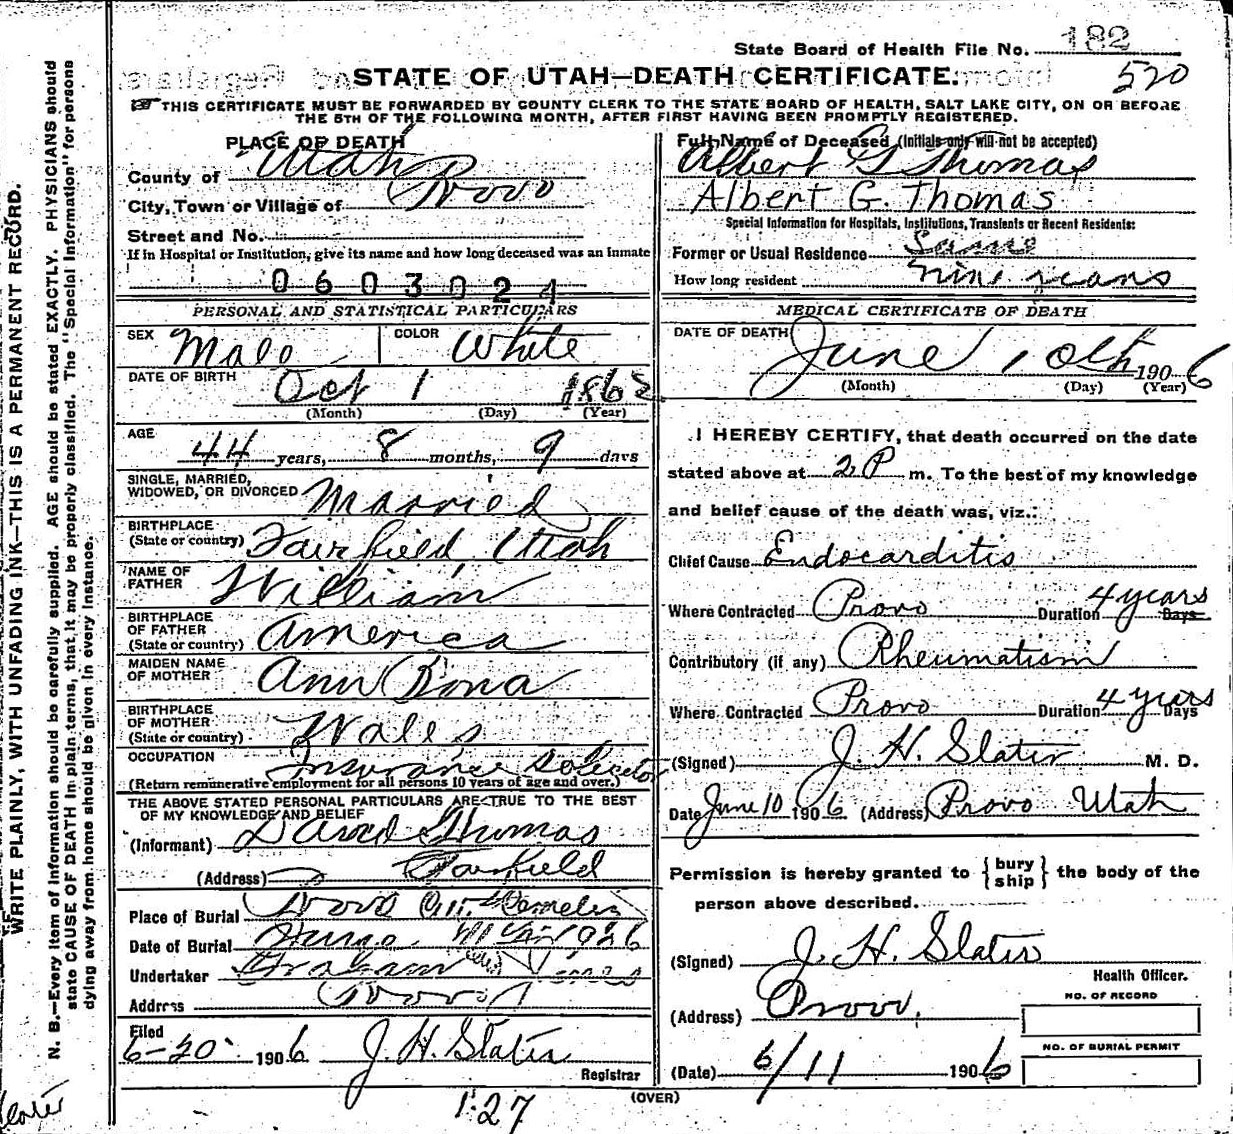 State Board of Health File No. 182
520
STATE OF UTAH—DEATH CERTIFICATE.
THIS CERTIFICATE MUST BE FORWARDED BY COUNTY CLERK TO THE STATE BOARD OF HEALTH, SALT LAKE CITY, ON OR BEFORE
THE 5TH OF THE FOLLOWING MONTH, AFTER FIRST HAVING BEEN PROMPTLY REGISTERED.
PLACE OF DEATH
County of Utah
City, Town or Village of Provo
Street and No.
If in Hospital or Institution, give its name and how long deceased was an inmate
0603024
PERSONAL AND STATISTICAL PARTICULARS
SEX Male COLOR White
DATE OF BIRTH Oct 1 186
(Month) (Day) (Year)
AGE 44 years, 8 months, 9 days
SINGLE, MARRIED,
WIDOWED, OR DIVORCED Married
BIRTHPLACE
(State or country) Fairfield Utah
NAME OF
FATHER William
BIRTHPLACE
OF FATHER
(State or country) America
MAIDEN NAME
OF MOTHER Ann Bona
BIRTHPLACE
OF MOTHER
(State or country) Wales
OCCUPATION Insurance Solicitor
(Return remunerative employment for all persons 10 years of age and over.)
THE ABOVE STATED PERSONAL PARTICULARS ARE TRUE TO THE BEST
OF MY KNOWLEDGE AND BELIEF
(Informant) David Thomas
(Address) Fairfield
Place of Burial Provo City Cemetery
Date of Burial June 1906
Undertaker Graham
Address Provo
Filed
6-20 1906 J. H. Slater
Registrar
Full Name of Deceased (Initials only will not be accepted)
Albert G Thomas
Albert G. Thomas
Special Information for Hospitals, Institutions, Transients or Recent Residents:
Former or Usual Residence Same
How long resident Nine years
MEDICAL CERTIFICATE OF DEATH
DATE OF DEATH June 10th 1906
(Month) (Day) (Year)
I HEREBY CERTIFY, that death occurred on the date
stated above at 2 P m. To the best of my knowledge
and belief cause of the death was, viz.:
Chief Cause Endocarditis
Where Contracted Provo Duration 4 years Days
Contributory (if any) Rheumatism
Where Contracted Provo Duration 4 years Days
(Signed) J. H. Slater M. D.
Date June 10 1906 (Address) Provo Utah
Permission is hereby granted to { bury ship } the body of the
person above described.
(Signed) J. H. Slater
Health Officer.
(Address) Provo.
NO. OF RECORD
NO. OF BURIAL PERMIT
(Date) 6/11 1906
(OVER)
1:27
WRITE PLAINLY, WITH UNFADING INK—THIS IS A PERMANENT RECORD.
N. B.—Every item of information should be carefully supplied. AGE should be stated EXACTLY. PHYSICIANS should
state CAUSE OF DEATH in plain terms, that it may be properly classified. The "Special Information" for persons
dying away from home should be given in every instance.